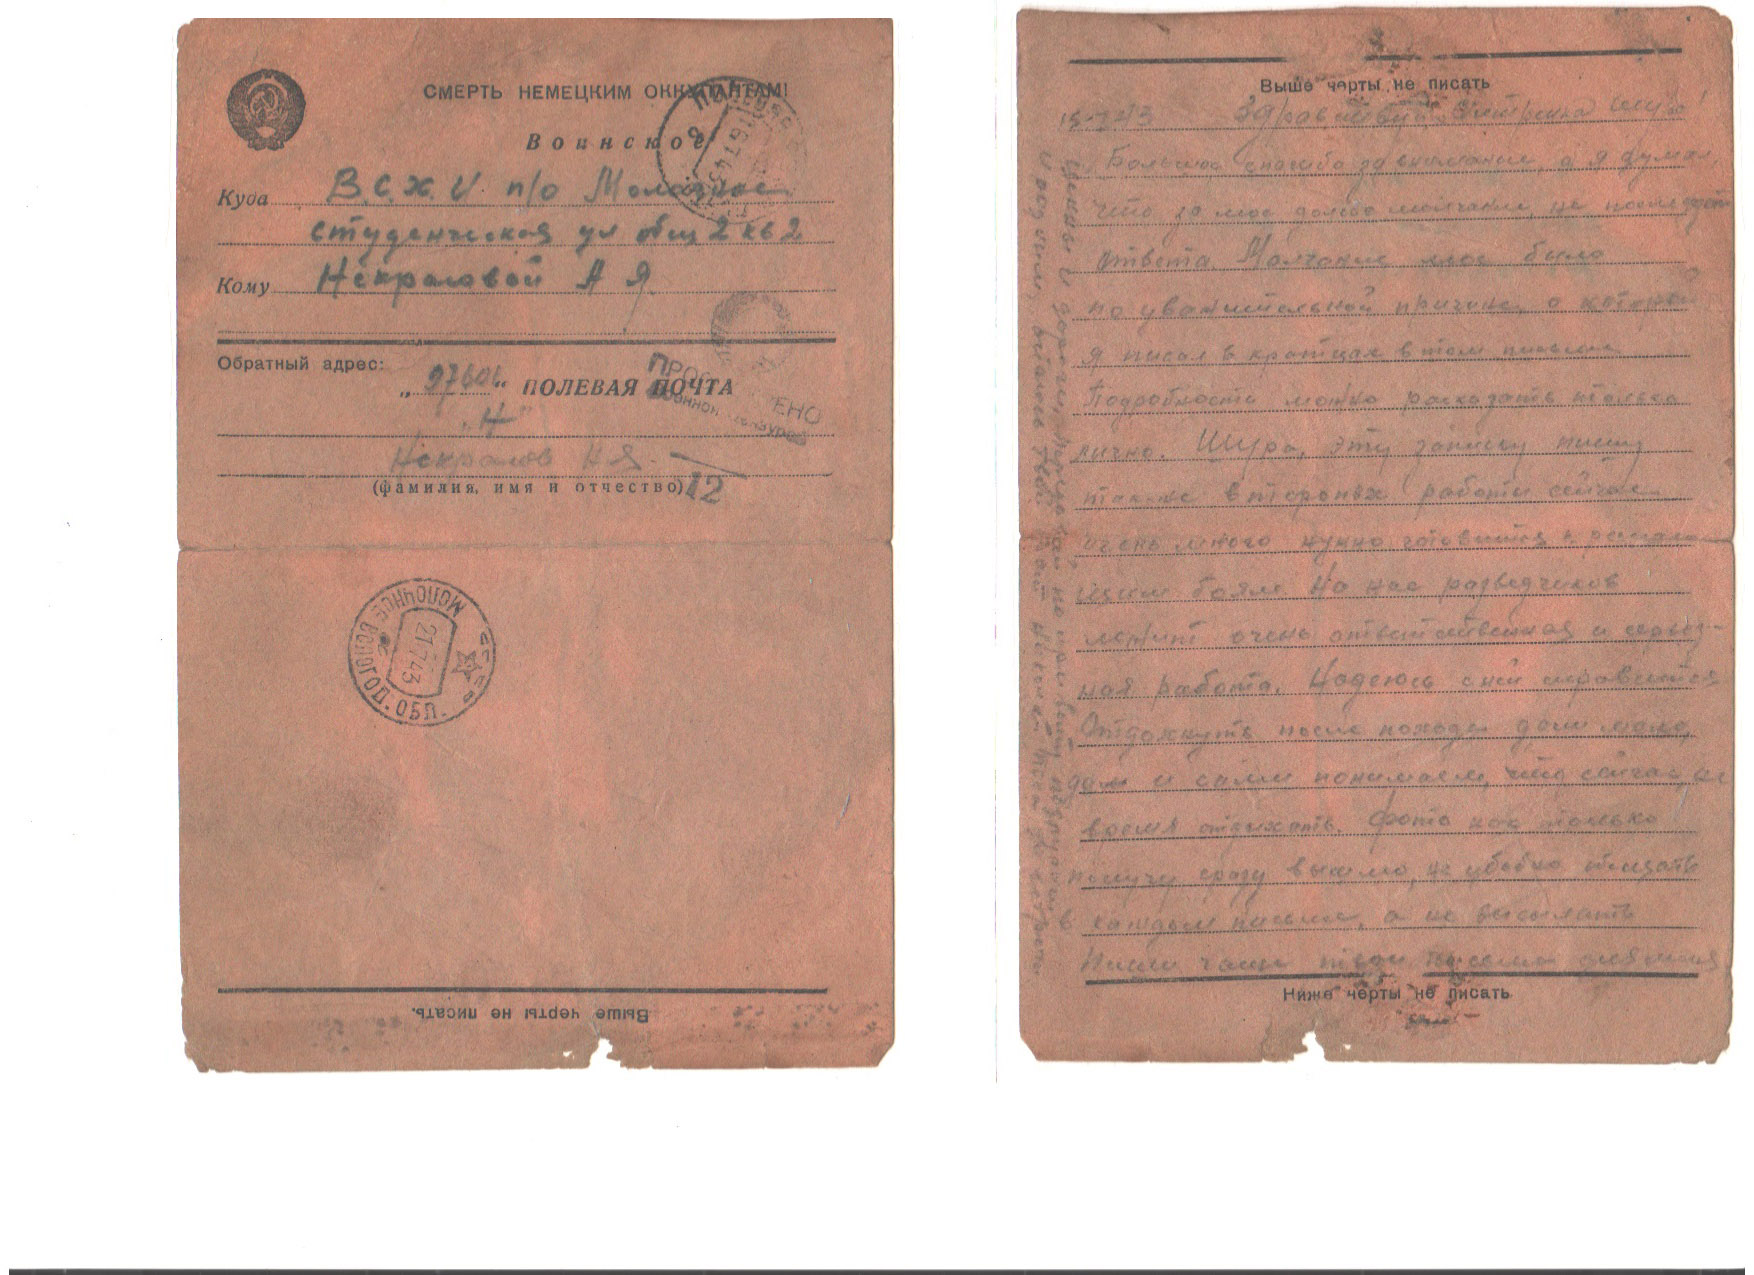 СМЕРТЬ НЕМЕЦКИМ ОККУПАНТАМ!
Воинское
Куда В.С.Х.И. п/о Молочное
студенческая ул общ 2 кв 2
Кому Некрасовой А Я
Обратный адрес:
„ 97606 “ ПОЛЕВАЯ ПОЧТА
„Н“
Некрасов Н Я.
(фамилия, имя и отчество)
12
ПРОСМОТРЕНО
Военной Цензурой
МОЛОЧНОЕ ВОЛОГОД. ОБЛ.
21 7 43
Выше черты не писать.
Выше черты не писать
15-7-43 Здравствуй, сестренка Шура!
Большое спасибо за внимание, а я думал,
что за мое долгое молчание не последует
ответа. Молчание мое было
по уважительной причине, о которой
я писал в кратцах в том письме.
Подробности можно расказать только
лично. Шура, эту записку пишу
также в торопях работы сейчас
очень много нужно готовится к решаю-
щим боям На нас разведчиков
лежит очень ответственная и серьез-
ная работа. Надеюсь с ней справится
Отдохнуть после похода дали мало,
да и сами понимаем, что сейчас не
время отдыхать. Фото как только
получу сразу вышлю, не
в каждом письме, а не высылать
Пиши чаще твои письма для меня
Ниже черты не писать